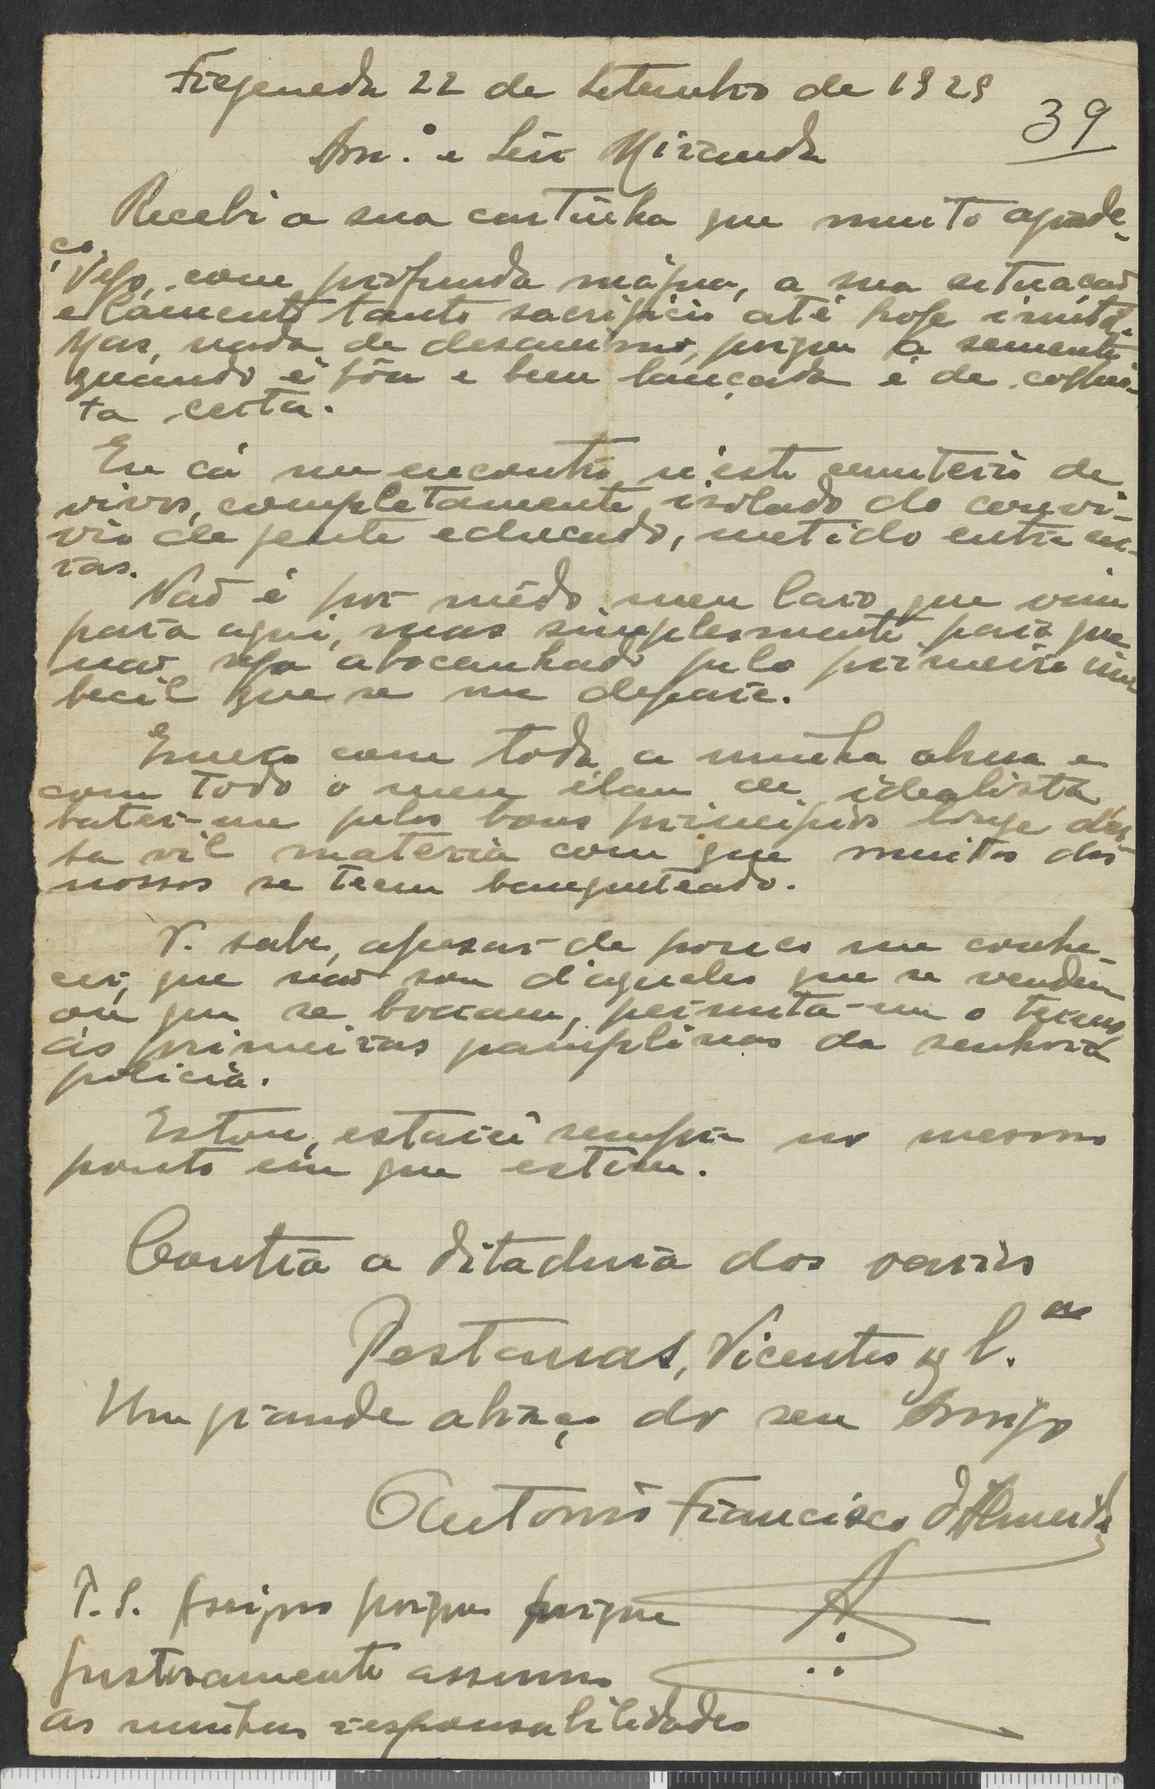 Fregeneda 22 de Setembro de 1929
39
Am.º e Snr Miranda
Recebi a sua cartinha que muito agrade-
ço.
Vejo, com profunda mágua, a sua situação
e lamento tanto sacrificio até hoje inutil.
Mas, nada de desanimo, porque a semente
quando é sôa e bem lançada é de colhei-
ta certa.
Eu cá me encontro n'este cemiterio de
vivos, completamente isolado do convi-
vio de gente educada, metido entre cu-
ras.
Não é por mêdo, meu caro, que vim
para aqui, mas simplesmente para que
não seja abocanhado pelo primeiro im-
becil que se me depare.
com toda a minha alma e
com todo o meu élan de idealista
bater-me pelos bons principios longe d'es-
sa vil materia com que muitos dos
nossos se teem banqueteado.
V. sabe, apesar de pouco me conhe-
cer, que não sou d'aqueles que se vendem
ou que se borram, permita-me o termo,
ás primeiras pamplinas da senhora
policia.
Estou, estarei sempre no mesmo
ponto em que estive.
Contra a ditadura dos varios
Pestanas, Vicentes & C.ª
Um grande abraço do seu Amigo
Antonio Francisco d'Almeida
P.S. Assigno porque porque
justosamente assumo
as minhas responsabilidades